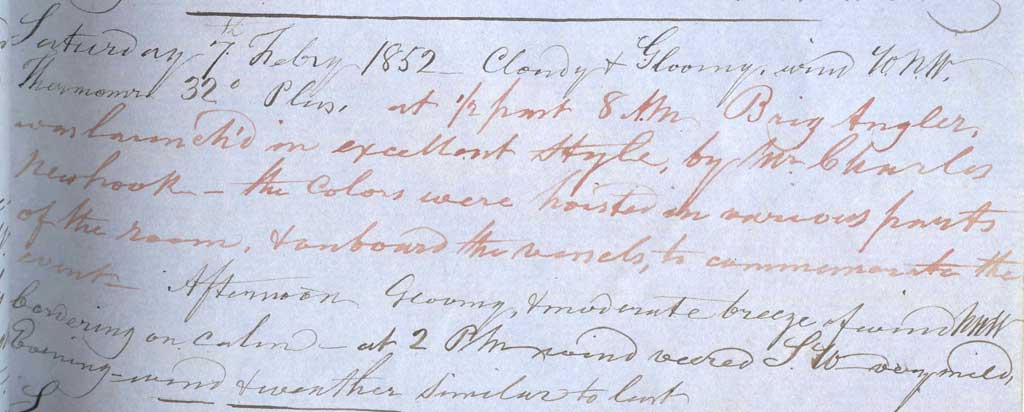 Saturday 7th Febry 1852 - Cloudy & Gloomy, wind WNW.
Thermomr 32° Plus, at 1/2 past 8 AM Brig Angler,
was launch'd in excellent style, by Mr. Charles
Newhook - the Colors were hoisted in various parts
of the room, & onboard the vessels, to commemorate the
event -
Afternoon Gloomy, & moderate breeze of wind NNW
bordering on calm - at 2 PM wind veered S.W very mild,
Evening - wind & weather similar to last
S